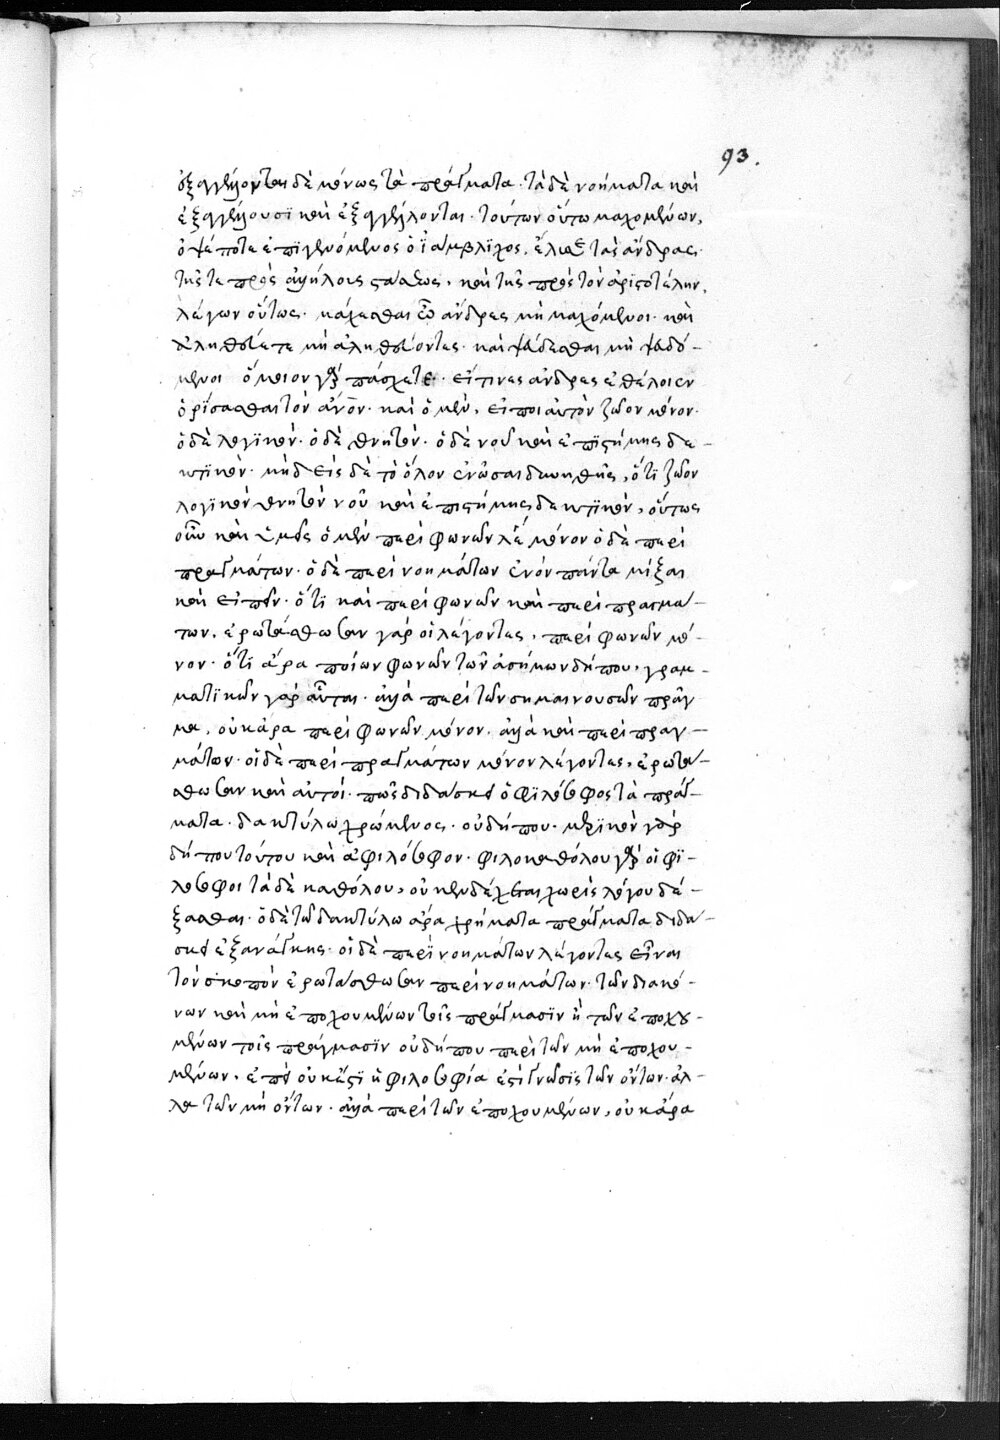 93.
ἐξαγγέλλονται δὲ μόνως τὰ πράγματα· τὰ δὲ νοήματα καὶ
ἐξαγγέλλουσϊ καὶ ἐξαγγέλλονται· τούτων οὕτω μαχομένων,
ὀψέ ποτε ἐπϊγενόμενος ὁ ἰάμβλϊχος, ἔλυσε τοὺς ἄνδρας
τῆς τε πρὸς ἀλλήλους στάσεως, καὶ τῆς πρὸς τὸν ἀρϊστοτέλην,
λέγων οὕτως· μάχεσθαι ὦ ἄνδρες μὴ μαχόμενοι· καὶ
ἀληθεύετε μὴ ἀληθεύοντες· καὶ ψεύδεσθαι μὴ ψευδό-
μενοι ὅμοιον γὰρ πάσχετε· εἴ τινες ἄνδρες ἐθέλοιεν
ὁρίσασθαι τὸν ἄνον· καὶ ὁ μὲν, εἴποι αὐτὸν ζῶον μόνον·
ὁ δὲ λογϊκόν· ὁ δὲ θνητόν· ὁ δὲ νοῦ καὶ ἐπϊστήμης δε-
κτϊκόν· μηδεὶς δὲ τὸ ὅλον ἑνῶσαι δυνηθῆς, ὅτϊ ζῶον
λογϊκὸν θνητὸν νοῦ καὶ ἐπιστήμης δεκτϊκόν, οὕτως
οὖν καὶ ὑμεῖς ὁ μὲν περὶ φωνῶν λέ μόνον ὁ δὲ περὶ
πραγμάτων· ὁ δὲ περὶ νοημάτων ἐνὸν πάντα μίξαι
καὶ εἰπεῖν· ὅτϊ καὶ περὶ φωνῶν καὶ περὶ πραγμά-
των, ἐρωτάσθωσαν γὰρ οἱ λέγοντες, περὶ φωνῶν μό-
νον· ὅτϊ ἄρα ποίων φωνῶν τῶν ἀσήμων δήπου, γραμ-
ματϊκῶν γὰρ αὗται· ἀλλὰ περὶ τῶν σημαινουσῶν πρᾶγ
μα, οὐκ ἄρα περὶ φωνῶν μόνον· ἀλλὰ καὶ περὶ πραγ-
μάτων· οἱ δὲ περὶ πραγμάτων μόνον λέγοντες, ἐρωτά-
σθωσαν καὶ αὐτοί· πῶς διδάσκει ὁ φϊλόσοφος τὰ πράγ-
ματα· δακτύλω χρώμενος· οὐ δήπου· μερϊκὸν γὰρ
δήπου τοῦτο καὶ ἀφιλόσοφον· φιλοκαθόλου γὰρ οἱ φϊ-
λόσοφοι τὰ δὲ καθόλου, οὐκ ἐνδέχεται χωρὶς λόγου δέ-
ξασθαι· ὁ δὲ τῶ δακτύλω ἄρα χρήματα πράγματα διδά-
σκει ἐξανάγκης· οἱ δὲ περὶ νοημάτων λέγοντες εἶναι
τὸν σκοπὸν ἐρωτάσθωσαν περὶ νοημάτων· τῶν διακέ-
νων καὶ μὴ ἐποχουμένων τοῖς πράγμασϊν ἢ τῶν ἐποχου-
μένων τοῖς πράγμασϊν οὐ δήπου περὶ τῶν μὴ ἐποχου-
μένων, ἐπεὶ οὐκέτϊ ἡ φιλοσοφία ἐστὶ γνῶσϊς τῶν ὄντων· ἀλ-
λὰ τῶν μὴ ὄντων· ἀλλὰ περὶ τῶν ἐποχουμένων, οὐκ ἄρα